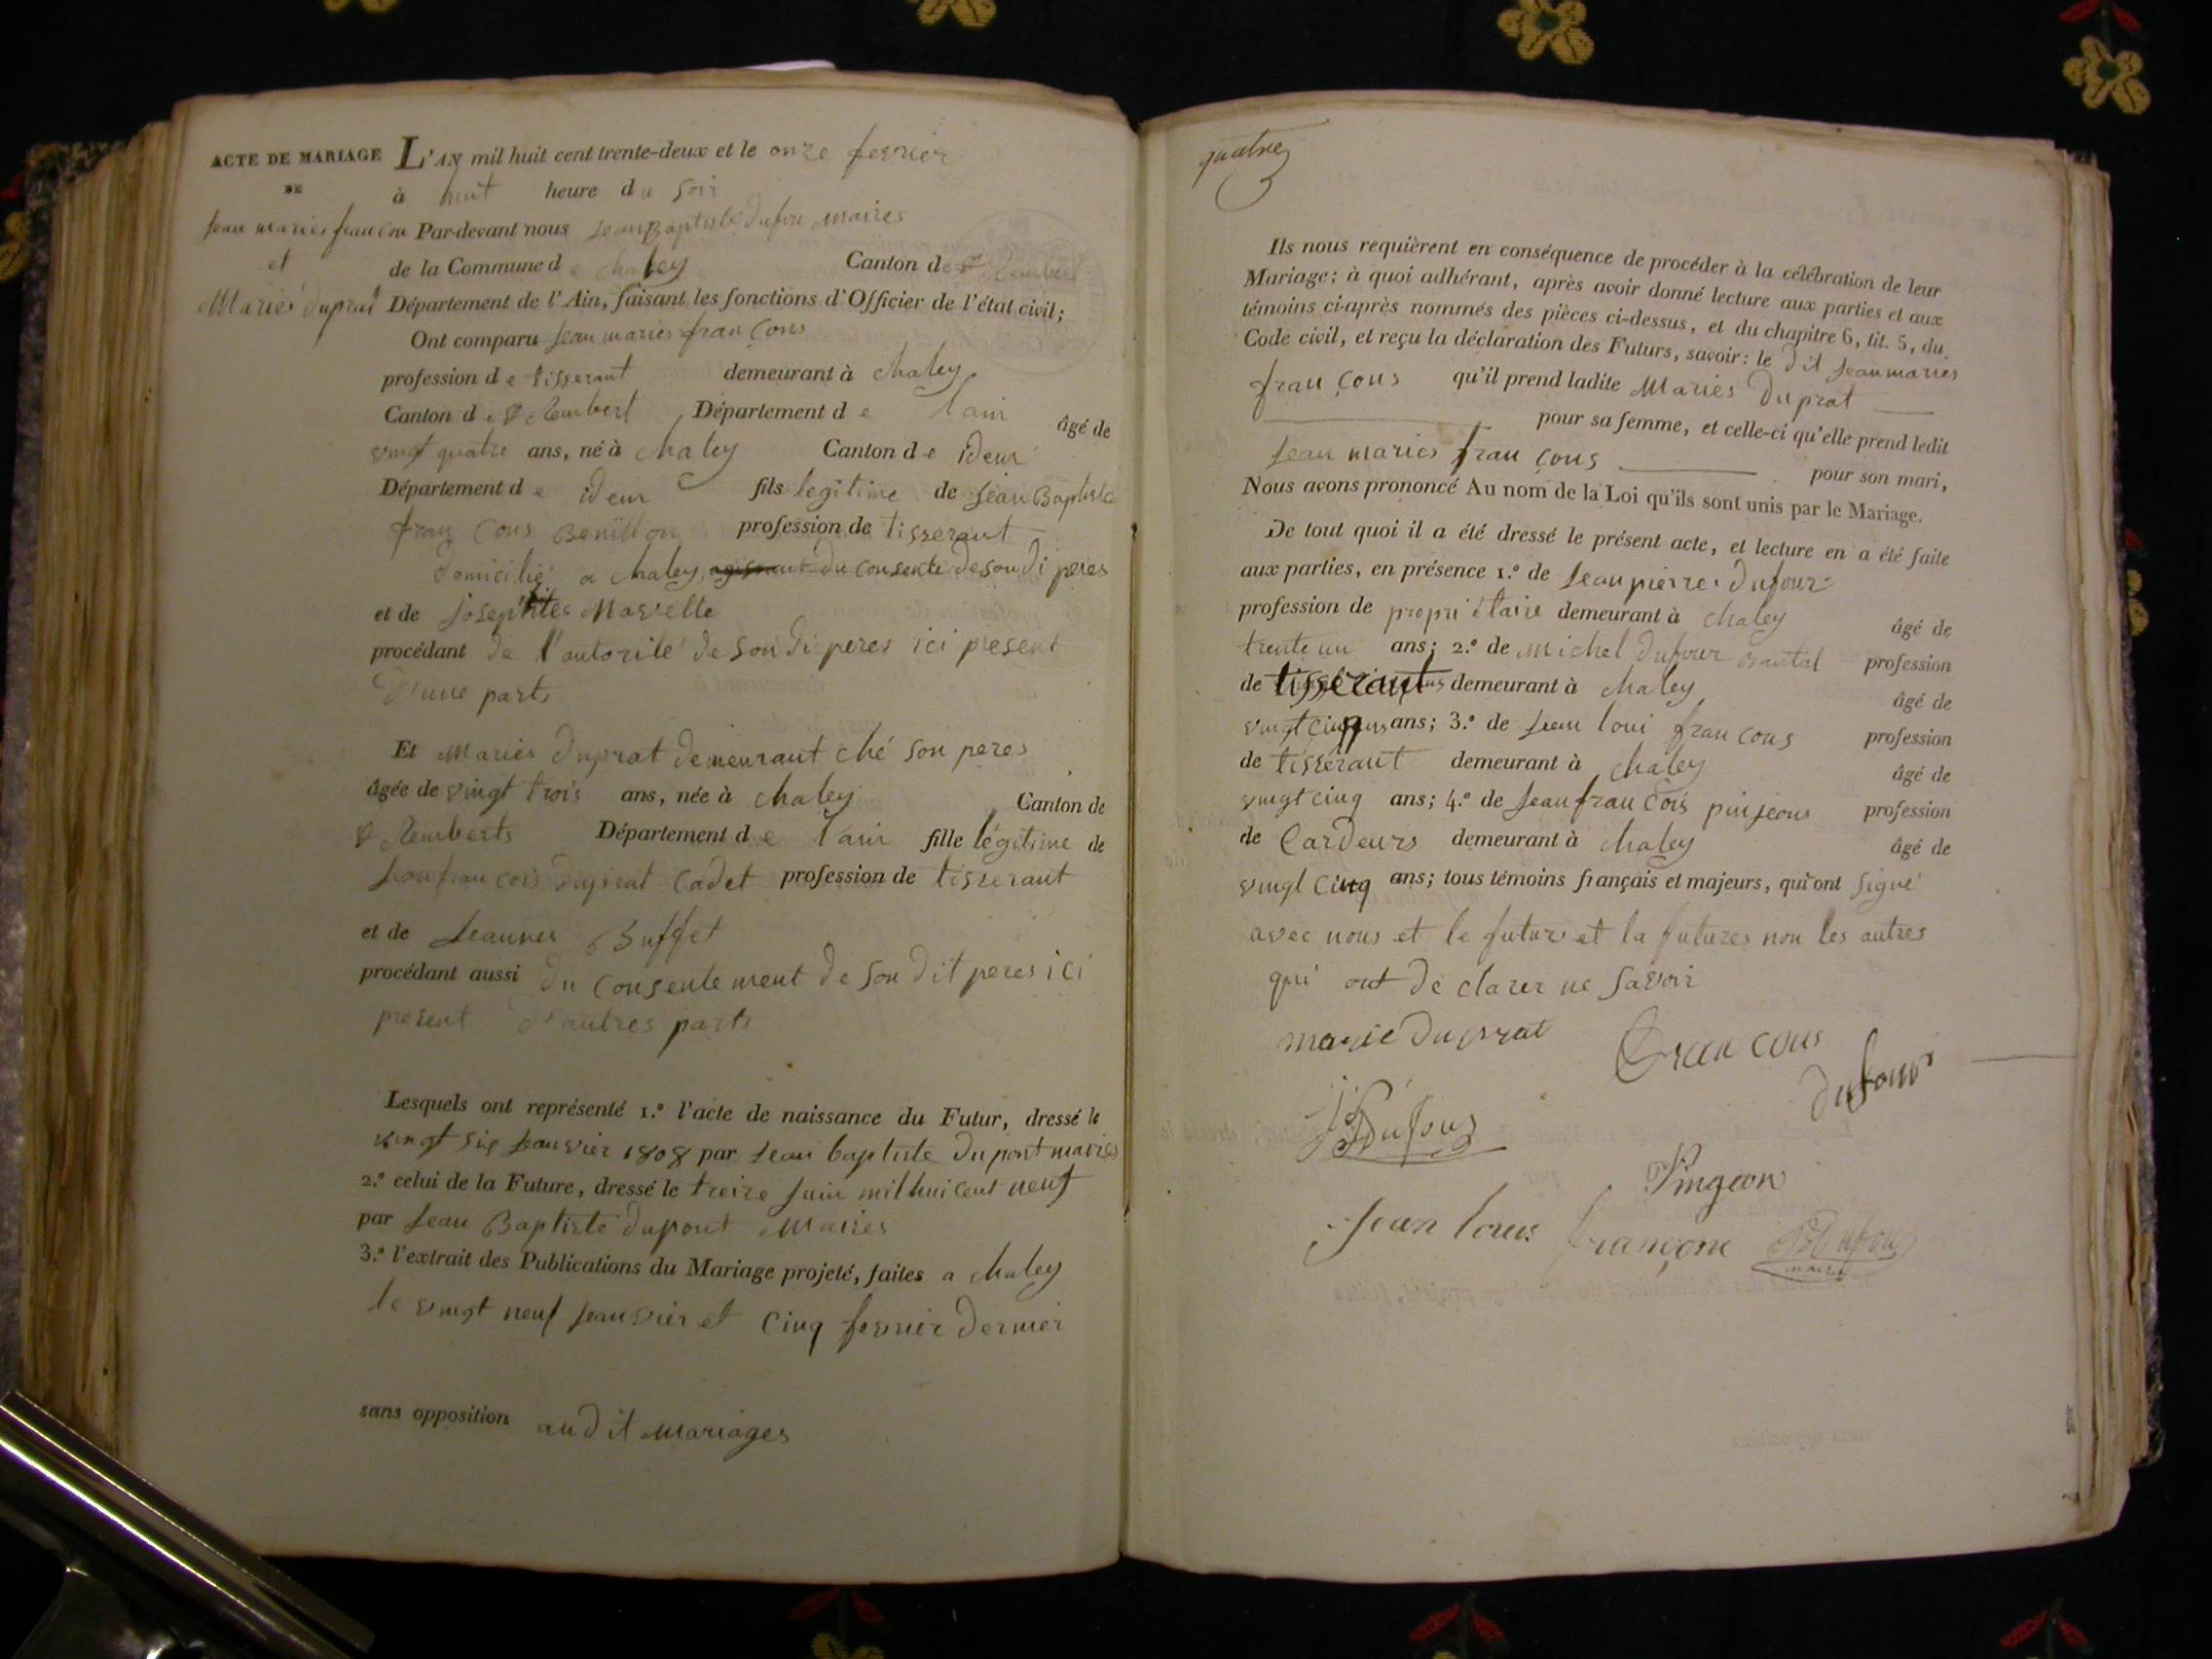 ACTE DE MARIAGE
DE
Jean maries françon
et
Maries duprat
L'AN mil huit cent trente-deux et le onze fevrier
à huit heure du soir
Par-devant nous Jean Baptiste Dufour maires
de la Commune de chaley Canton de St Rembert
Département de l'Ain, faisant les fonctions d'Officier de l'état civil;
Ont comparu Jean maries françons
profession de tisserant demeurant à chaley
Canton de St Rembert Département de lain âgé de
vingt quatre ans, né à chaley Canton de idem
Département de idem fils legitime de Jean Baptiste
françons profession de tisserant
domicilié a chaley agissant du consente de son di peres
et de Josephtes Mavette
procédant de l'autorité de son di peres ici present
d'une parts
Et Maries duprat demeurant ché son peres
âgée de vingt trois ans, née à chaley Canton de
St Remberts Département de l'ain fille légitime de
Jean françois duprat Cadet profession de tisserant
et de Jeannes Buffet
procédant aussi du consentement de son dit peres ici
present d'autres parts
Lesquels ont représenté 1.º l'acte de naissance du Futur, dressé le
vingt six Jeanvier 1808 par Jean baptiste dupont maires
2.º celui de la Future, dressé le treize Juin mil hui cent neuf
par Jean Baptiste dupont Maires
3.º l'extrait des Publications du Mariage projeté, faites a chaley
le vingt neuf Jeanvier et cinq fevrier dernier
sans opposition audit mariages
quatre
Ils nous requièrent en conséquence de procéder à la célébration de leur
Mariage; à quoi adhérant, après avoir donné lecture aux parties et aux
témoins ci-après nommés des pièces ci-dessus, et du chapitre 6, tit. 5, du
Code civil, et reçu la déclaration des Futurs, savoir: le dit Jean maries
françons qu'il prend ladite Maries Duprat
pour sa femme, et celle-ci qu'elle prend ledit
Jean maries françons pour son mari,
Nous avons prononcé Au nom de la Loi qu'ils sont unis par le Mariage.
De tout quoi il a été dressé le présent acte, et lecture en a été faite
aux parties, en présence 1.º de Jean pierre Dufour
profession de propriétaire demeurant à chaley âgé de
trente un ans; 2.º de Michel Dufour profession
de tisserant demeurant à chaley âgé de
vingt cinq ans; 3.º de Jean loui françons profession
de tisserant demeurant à chaley âgé de
vingt cinq ans; 4.º de Jean françois pinjeons profession
de Cardeurs demeurant à chaley âgé de
vingt cinq ans; tous témoins français et majeurs, qui ont signé
avec nous et le futur et la futures non les autres
qui ont de clarer ne savoir
marie duprat françons
dufour
JP Dufour
Pingeon
Jean louis françons Dufour
maire